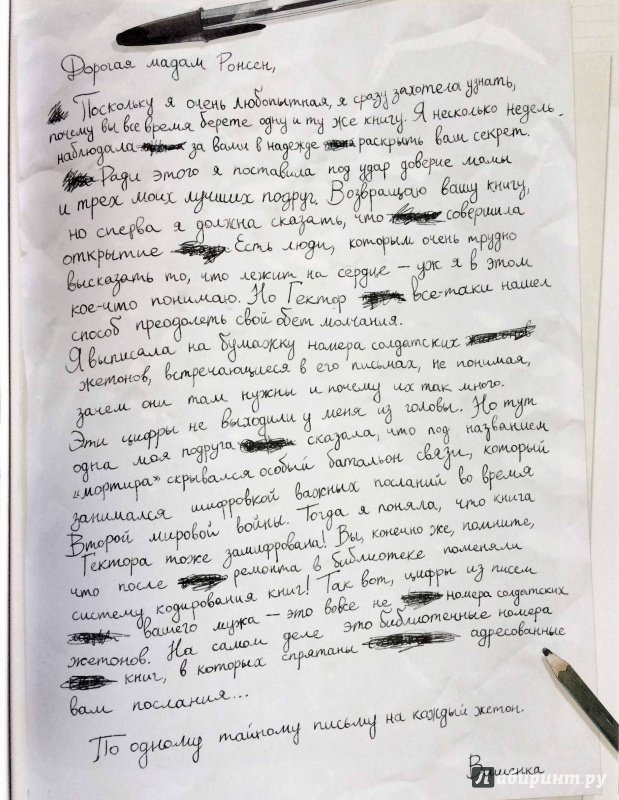 Дорогая мадам Ронсен,
Поскольку я очень любопытная, я сразу захотела узнать,
почему вы все время берете одну и ту же книгу. Я несколько недель
наблюдала за вами в надежде раскрыть ваш секрет.
Ради этого я поставила под удар доверие мамы
и трех моих лучших подруг. Возвращаю вашу книгу,
но сперва я должна сказать, что совершила
открытие Есть люди, которым очень трудно
высказать то, что лежит на сердце – уж я в этом
кое-что понимаю. Но Гектор все-таки нашел
способ преодолеть свой обет молчания.
Я выписала на бумажку номера солдатских
жетонов, встречающиеся в его письмах, не понимая,
зачем они там нужны и почему их так много.
Эти цифры не выходили у меня из головы. Но тут
одна моя подруга сказала, что под названием
«мортира» скрывался особый батальон связи, который
занимался шифровкой важных посланий во время
Второй мировой войны. Тогда я поняла, что книга
Гектора тоже зашифрована! Вы, конечно же, помните,
что после ремонта в библиотеке поменяли
систему кодирования книг! Так вот, цифры из писем
вашего мужа – это вовсе не номера солдатских
жетонов. На самом деле это библиотечные номера
книг, в которых спрятаны адресованные
вам послания...
По одному тайному письму на каждый жетон.
Лабиринт.ру